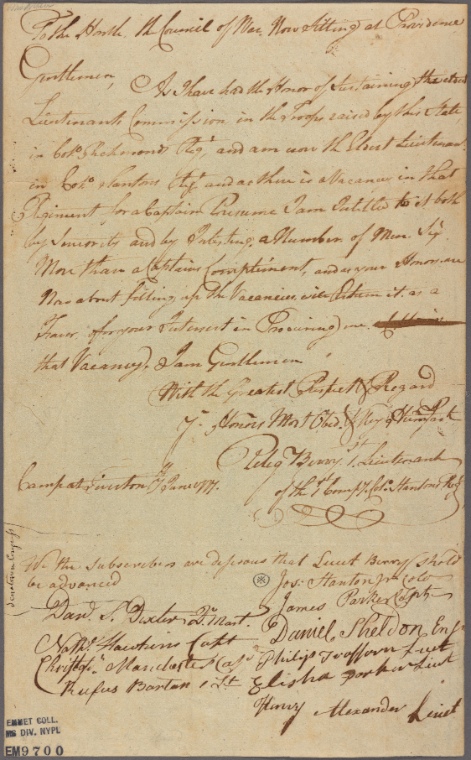 To the Honble. the Council of War Now Sitting at Providence
Gentlemen,
As I have had the Honor of Sustaining the
Lieutenants Commission in the Troops raised by this State
in Colo. Richmonds Regt. and am now the Eldest Lieutenant
in Colo. Stantons Regt. and as there is a Vacancy in that
Regiment for a Captain Presume I am Intitled to it both
by Seniority and by Inlisting a Number of Men
More than a Captains Compliment, and as your Honors are
Now about filling up the Vacancies will Esteem it as a
Favor of your Interest in Procuring me
that Vacancy, I am Gentlemen
With the Greatest Respect & Regard
Yr. Honors Most Obed. & Very Humb
Peleg Berry 1st. Lieutenant
Camp at Tiverton 7 June 1777.
of the 1 Compy. Colo. Stantons Regt
We the Subscribers are desirous that Lieut Berry Shold
be advanced
Jos. Stanton Jr Colo
James Parker Capt
Davd. S. Dexter Qr Mast.
Daniel Sheldon Ens
Nathl. Hawkins Capt
Philip Traffarn Liut
Christphr. Manchester Cap
Elisha Parker Liut
Rufus Barton 1 Lt
Henry Alexander Liuet
EMMET COLL.
MS DIV. NYPL
EM9700